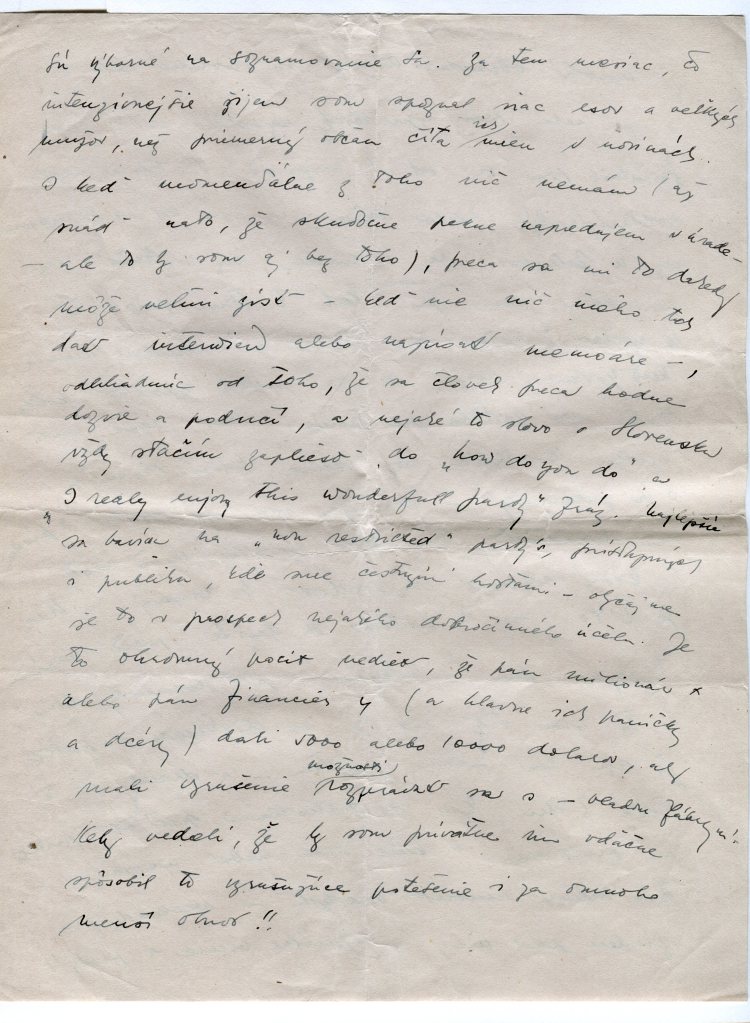 sú výborné na soznamovanie sa. Za ten mesiac, čo
intenzívnejšie žijem som spoznal viac esov a veľkých
mužov, než priemerný občan číta ich mien v novinách.
I keď momentálne z toho nič nemám (až
snáď nato, že skutočne pekne napredujem v úrade –
– ale to by som aj bez toho), preca sa mi to dakedy
môže veľmi zísť – keď nie nič iného tak
dať interview alebo napísať memoáre –,
odhliadnúc od toho, že sa človek preca hodne
dozvie a podučí, a nejaké to slovo o Slovensku
vždy stačím zapliesť do „how do you do" a
„I realy enjoy this wonderfull party" fráz. Najlepšie
sa bavím na „non restricted" party's, prístupných
i publiku, kde sme čestnými hosťami – obyčajne
je to v prospech nejakého dobročinného účelu. Je
to ohromný pocit vedieť, že pán milionár X
alebo pán financier Y (a hlavne ich paničky
a dcéry) dali 5000 alebo 10000 dolárov, aby
mali vzrušenie možnosti rozprávať sa s – Vladom Fábrym.
Keby vedeli, že by som privátne im vďačne
spôsobil to vzrušujúce potešenie i za omnoho
menší obnos!!